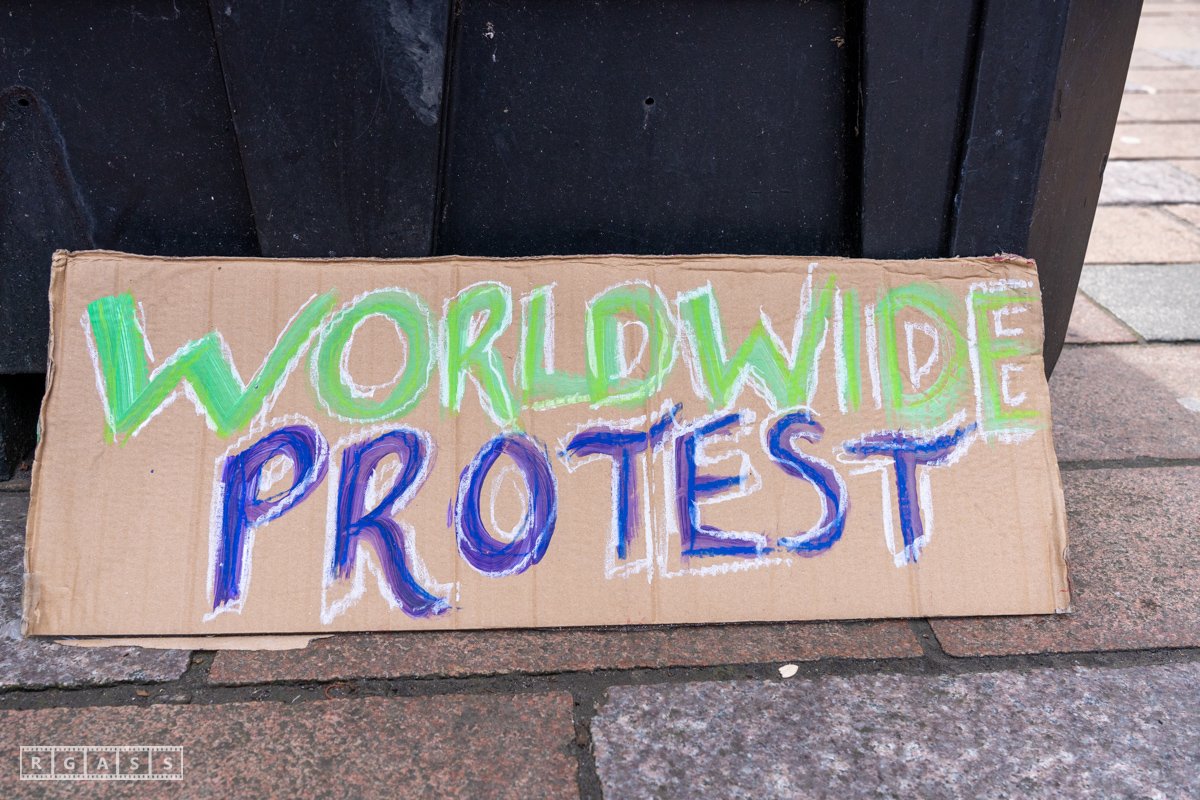 WORLDWIDE
PROTEST
RGASS